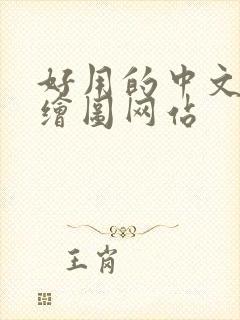 好用的中文
繪圖网占
王肖